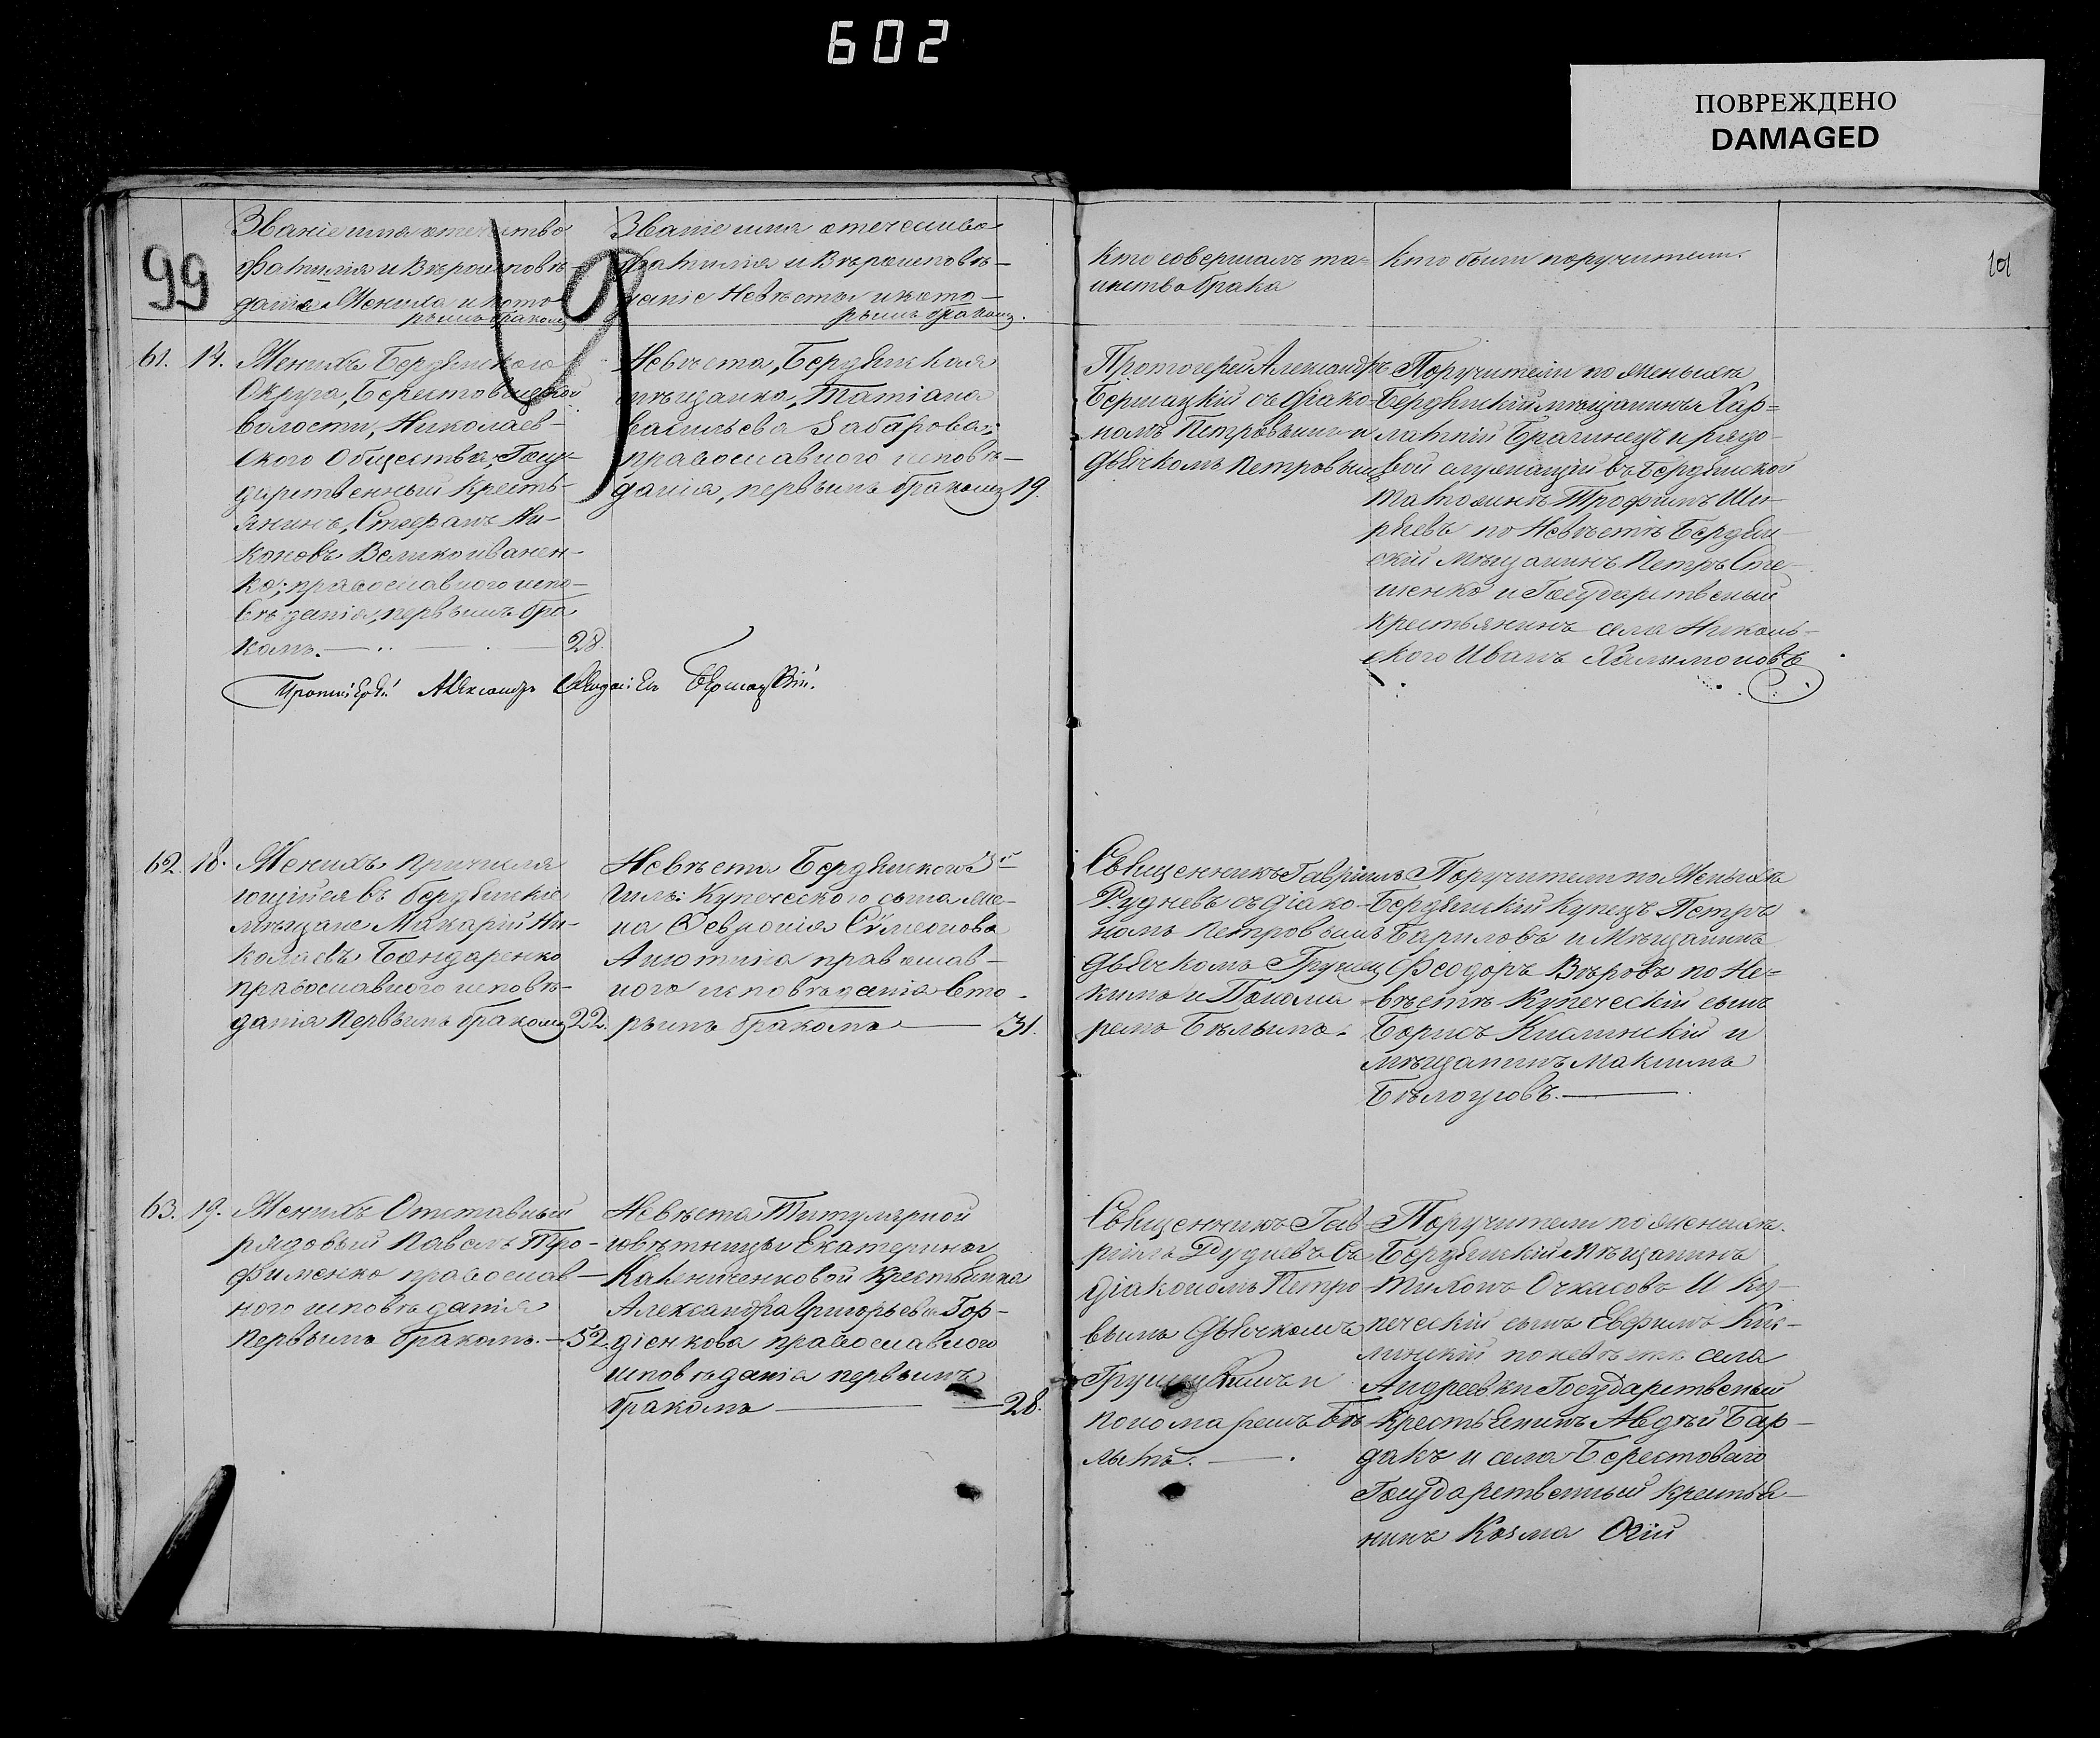 602
ПОВРЕЖДЕНО
DAMAGED
99
Званіе имя отечество
Фамилія и Вѣроисповѣ-
даніе Жениха и кото-
рымъ бракомъ
Званіе имя отечество
Фамилія и Вѣроисповѣ-
даніе Невѣсты и кото-
рымъ бракомъ.
Кто совершалъ та-
инство брака
Кто были поручители.
101
61. 14. Женихъ Бердянскаго
Округа, Берестовецкой
Волости, Николаев-
скаго Общества, Госу-
дарственный кресть-
янинъ, Стефанъ Ни-
коновъ Великоиванен-
ко; православнаго испо-
вѣданія, первымъ бра
комъ. 28.
Невѣста, Бердянская
мѣщанка, Татіана
Васильева Забарова;
православнаго исповѣ-
данія, первымъ бракомъ 19.
Протоіерей Александръ
Бершацкій съ діако-
номъ Петровымъ и
дьячкомъ Петровым
Поручители по женихѣ
Бердянскій мѣщанинъ Хар-
лампій Брагинецъ и рядо-
вой служащій въ Бердянской
Таможнѣ Трофимъ
по Невѣстѣ Бердян-
скій Мѣщанинъ Петръ Сте-
шенко и Государственый
крестьянинъ села Николь-
скаго Иванъ Халимоновъ
Протоіерей Александръ Бершацкій.
62. 18. Женихъ причисля
ющійся въ бердянскіе
мѣщане Макарій Ни-
колаевъ Бондаренко
православнаго исповѣ-
данія первымъ бракомъ 22.
Невѣста Бердянскаго 3й
Гиль: Купеческаго сына же-
на Февронія Сѵмеонова
Анютина православ-
наго исповѣданія вто-
рымъ бракомъ 31.
Священникъ Гавріилъ
Рудневъ съ діако-
номъ Петровымъ
дьячкомъ Грушец
кимъ и Понома-
ремъ Бѣлымъ.
Поручители по Женихѣ
Бердянскій Купецъ Петръ
Гариловъ и Мѣщанинъ
Феодоръ Вѣровъ по Не-
вѣстѣ Купеческій сынъ
Борисъ Кислинскій и
мѣщанинъ Максимъ
Бѣлоусовъ.
63. 19. Женихъ Отставный
рядовый Павелъ Тро-
фименко православ-
наго исповѣданія
первымъ бракомъ. 52.
Невѣста Титулярной
совѣтницы Екатерины
Калениченковой Крестьянка
Александра Григорьева Гор-
діенкова православнаго
исповѣданія первымъ
бракомъ 28.
Священникъ Гав-
ріилъ Рудневъ съ
діакономъ Петро-
вымъ дьячкомъ
Грушецкимъ и
пономаремъ Бѣ-
лымъ.
Поручители по женихѣ.
Бердянскій Мѣщанинъ
Тихонъ Очкасовъ и Ку-
печескій сынъ Еверимъ Кис-
линскій по невѣстѣ села
Андреевки Государственый
Крестьянинъ Авдѣй Бар-
дакъ и села Берестоваго
Государственный крестья-
нинъ Козма Огій